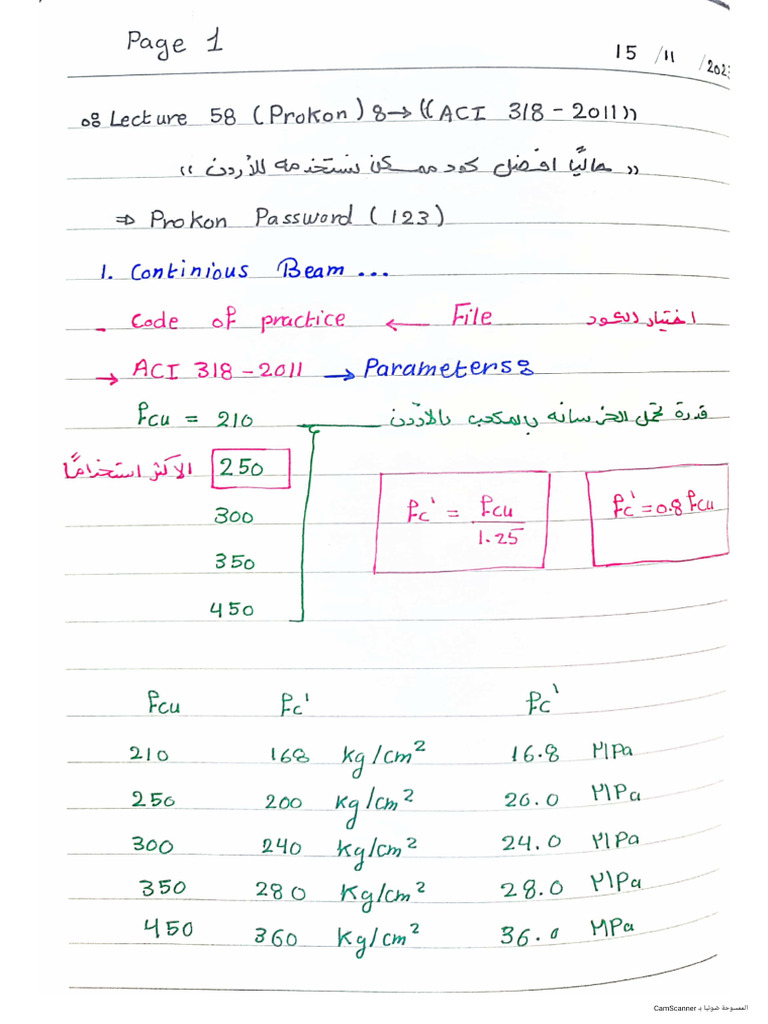 Page 1
15 / 11 / 2023
∴ Lecture 58 (Prokon) 8→ ((ACI 318 - 2011))
" حاليًا افضل كود ممكن نستخدمه للأردن "
⇒ Prokon Password (123)
1. Continious Beam ...
- Code of practice ← File اختيار الكود
→ ACI 318 - 2011 → Parameters:
fcu = 210 قدرة تحمل الخرسانه بالمكعب بالأردن
250 الأكثر استخدامًا
300
350
450
fc' = fcu / 1.25
fc' = 0.8 fcu
fcu fc' fc'
210 168 kg/cm² 16.8 MPa
250 200 kg/cm² 20.0 MPa
300 240 kg/cm² 24.0 MPa
350 280 kg/cm² 28.0 MPa
450 360 kg/cm² 36.0 MPa
الممسوحة ضوئيا بـ CamScanner